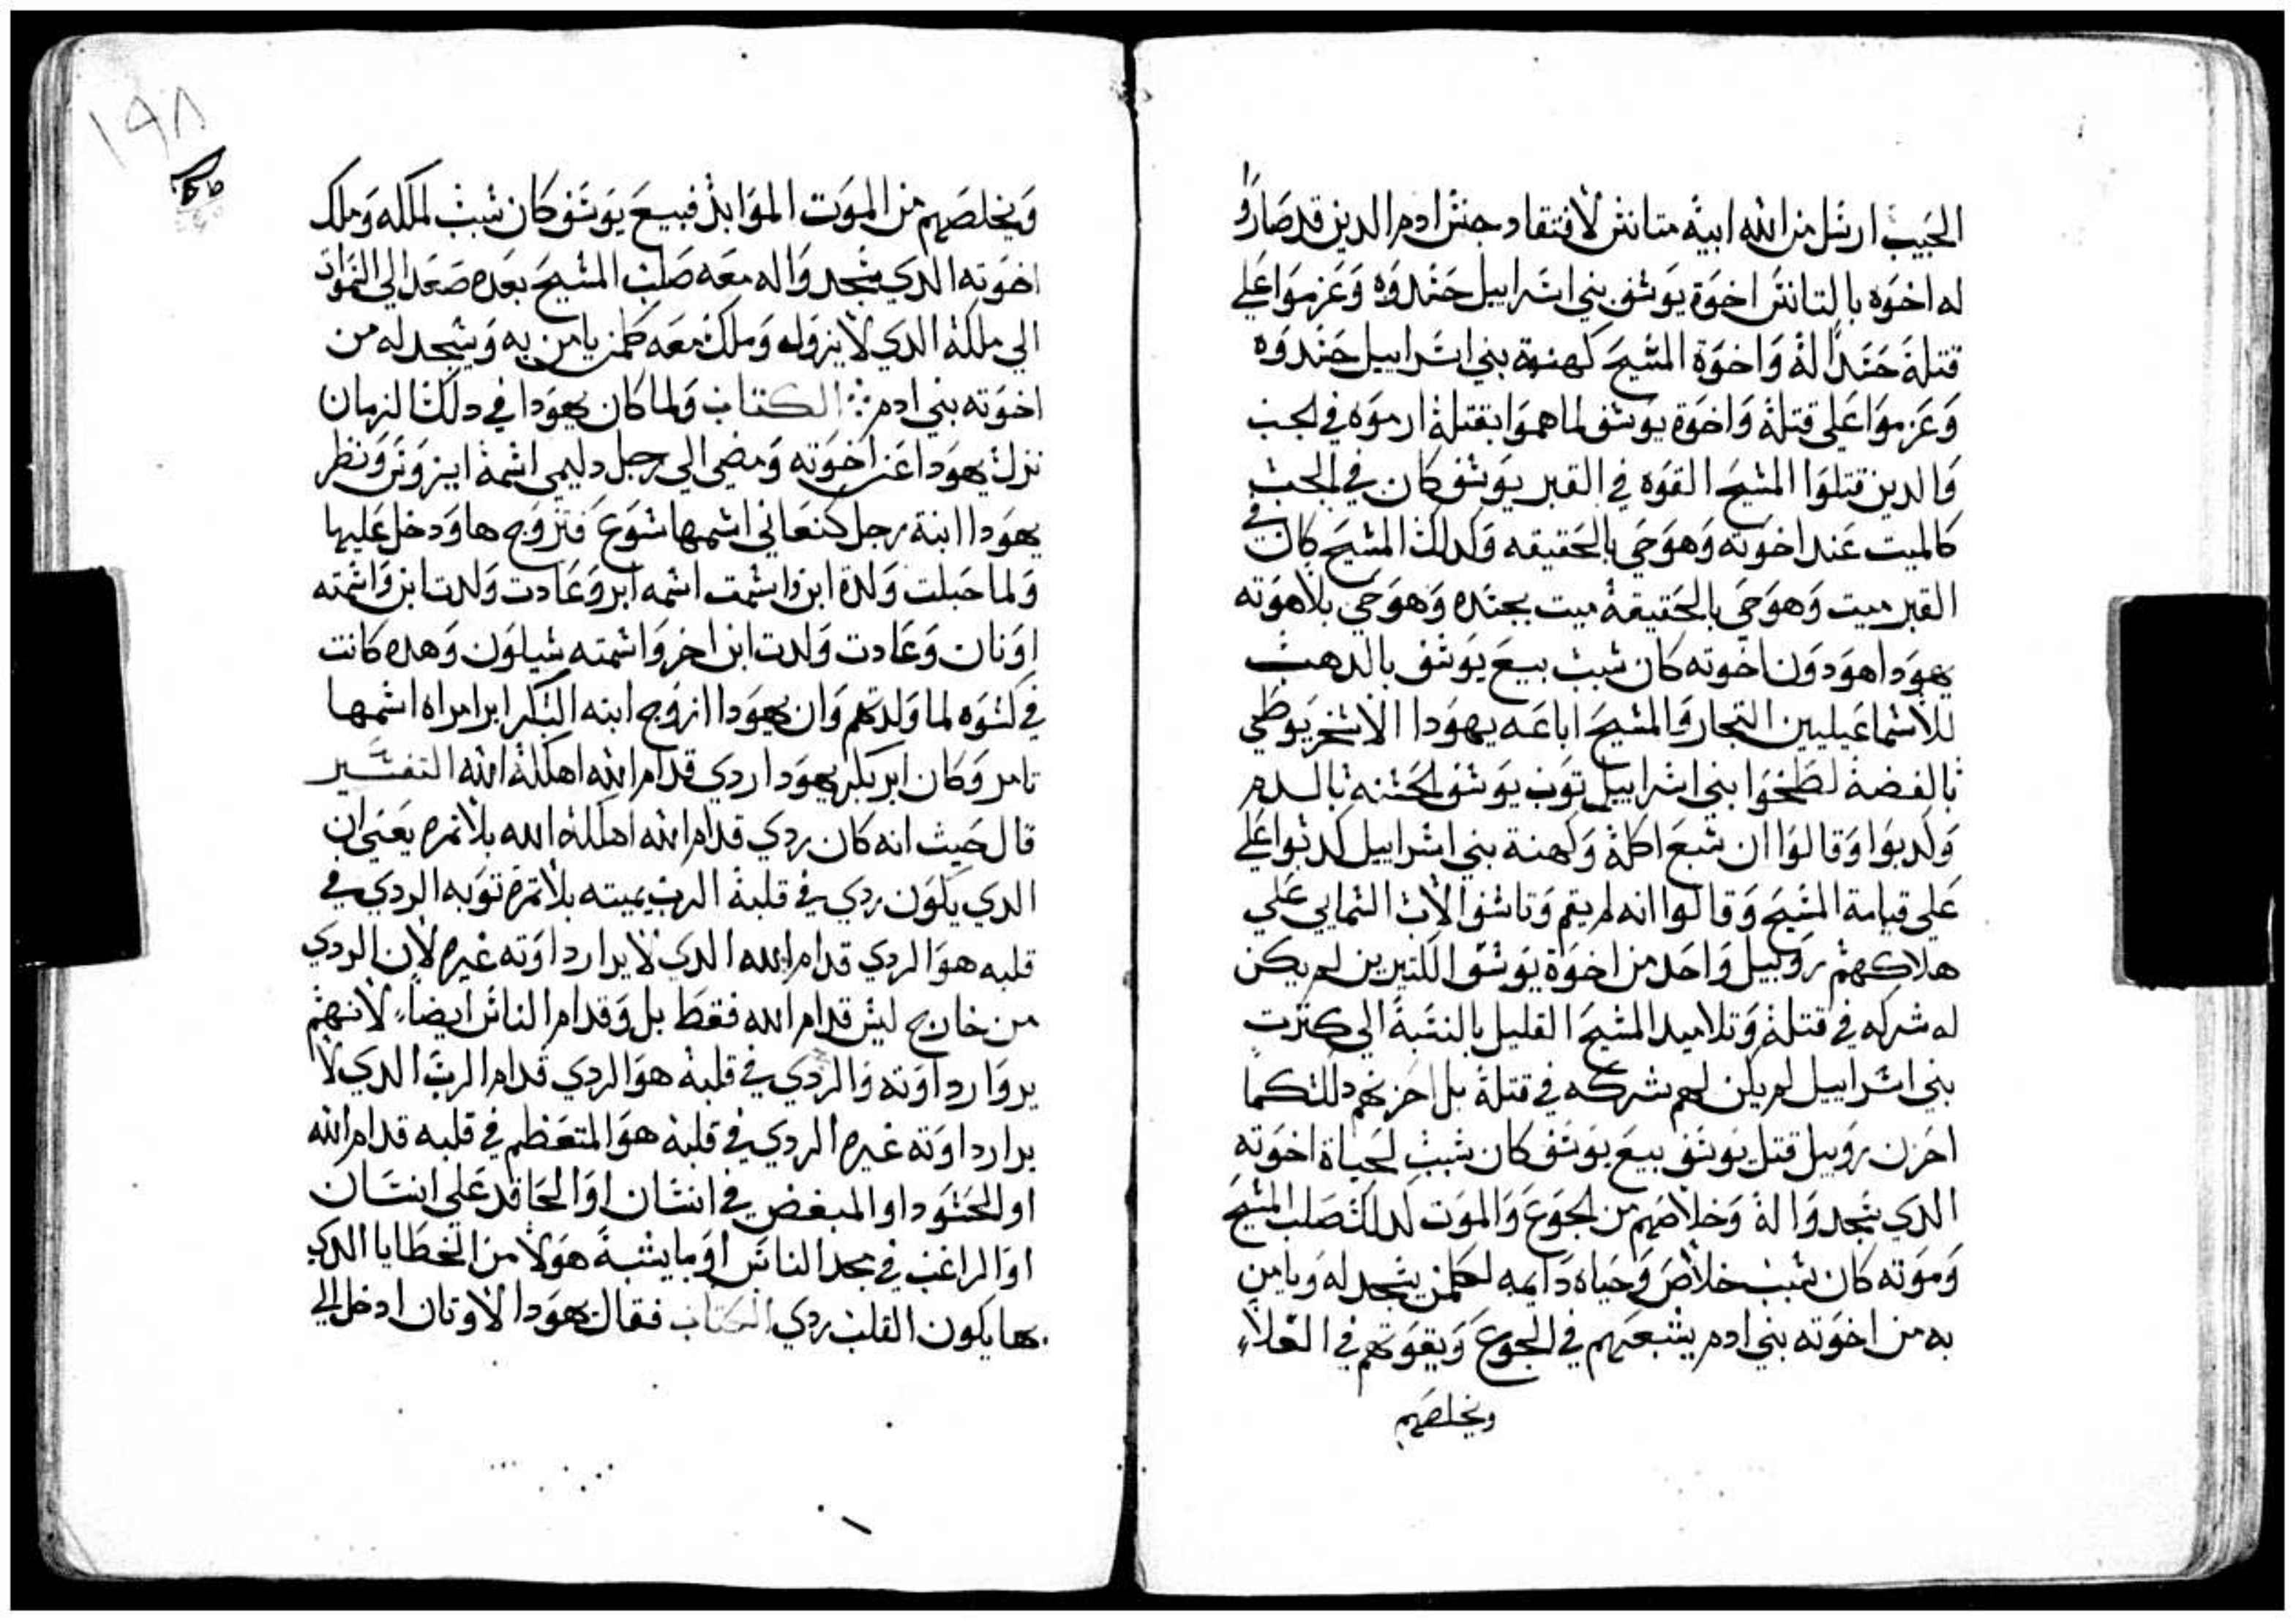 الحبيب ارسل من الله ابيه متانس لافتقاد جنس ادم الدين قد صاروا
له اخوه بالتانس اخوة يوسف بني اسراييل حسدوه وعزموا علي
قتلة حسدا له واخوة المسيح كهنة بني اسراييل حسدوه
وعزموا علي قتلة واخوة يوسف لما هموا بقتلة ارموه في الجب
والدين قتلوا المسيح القوه في القبر يوسف كان في الجب
كالميت عند اخوته وهو حي بالحقيقه وكدلك المسيح كان في
القبر ميت وهو حي بالحقيقة ميت بجسده وهو حي بلاهوته
يهودا هو دون اخوته كان سبب بيع يوسف بالدهب
للاسماعيليين التجار والمسيح اباعه يهودا الاسخريوطي
بالفضة لطخوا بني اسراييل توب يوسف لحسنه بالدم
وكدبوا وقالوا ان سبع اكلة وكهنة بني اسراييل كدبوا علي
علي قيامة المسيح وقالوا انه لم يقم وتاسف الاب السمايي علي
هلاكهم روبيل واحد من اخوة يوسف الكتيرين لم يكن
له شركه في قتلة وتلاميد المسيح القليل بالنسبة الي كترت
بني اسراييل لم يكن لهم شركه في قتلة بل احزنهم دلك كما
احزن روبيل قتل يوسف بيع يوسف كان سبب لحياة اخوته
الدي سجدوا له وخلاصهم من الجوع والموت كدلك صلب المسيح
وموته كان سبب خلاص وحياه دايمه لكلمن يسجد له ويامن
به من اخوته بني ادم يشبعهم في الجوع ويقوتهم في الغلاء
ويخلصهم
١٩٨
ويخلصهم من الموت الموابد فبيع يوسف كان سبب لملكه وملك
اخوته الدي سجدوا له معه صلب المسيح بعده صعد الي السموات
الي ملكة الدي لا يزول وملك معه كلمن يامن به ويسجد له من
اخوته بني ادم الكتاب ولما كان يهودا في دلك الزمان
نزل يهودا عن اخوته ومضي الي رجل دليمي اسمة ايزوس ونظر
يهودا ابنة رجل كنعاني اسمها شوع فتزوج ها ودخل عليها
ولما حبلت ولدة ابن واسمت اسمه ابر وعادت ولدت ابن واسمته
اونان وعادت ولدت ابن اخر واسمته شيلون وهده كانت
في كسوه لما ولدتهم وان يهودا ازوج ابنه البكر ابر امراه اسمها
تامر وكان ابر بكر يهودا ردي قدام الله اهلكة الله التفسير
قال حيت انه كان ردي قدام الله اهلكة الله بلا تمره يعني ان
الدي يكون ردي في قلبة الرب يميته بلا تمرة توبه الردي في
قلبه هو الردي قدام الله الدي لا يرا رداوته غيره لان الردي
من خارج ليس قدام الله فقط بل وقدام الناس ايضا لانهم
يروا رداوته والردي في قلبة هو الردي قدام الرب الدي لا
يرا رداوته غيره الردي في قلبة هو المتعظم في قلبه قدام الله
او الحسود او المبغض في انسان او الحاقد علي انسان
او الراغب في مجد الناس او ما يشبة هولا من الخطايا الدي
بها يكون القلب ردي الكتاب فقال يهودا لاونان ادخل الي